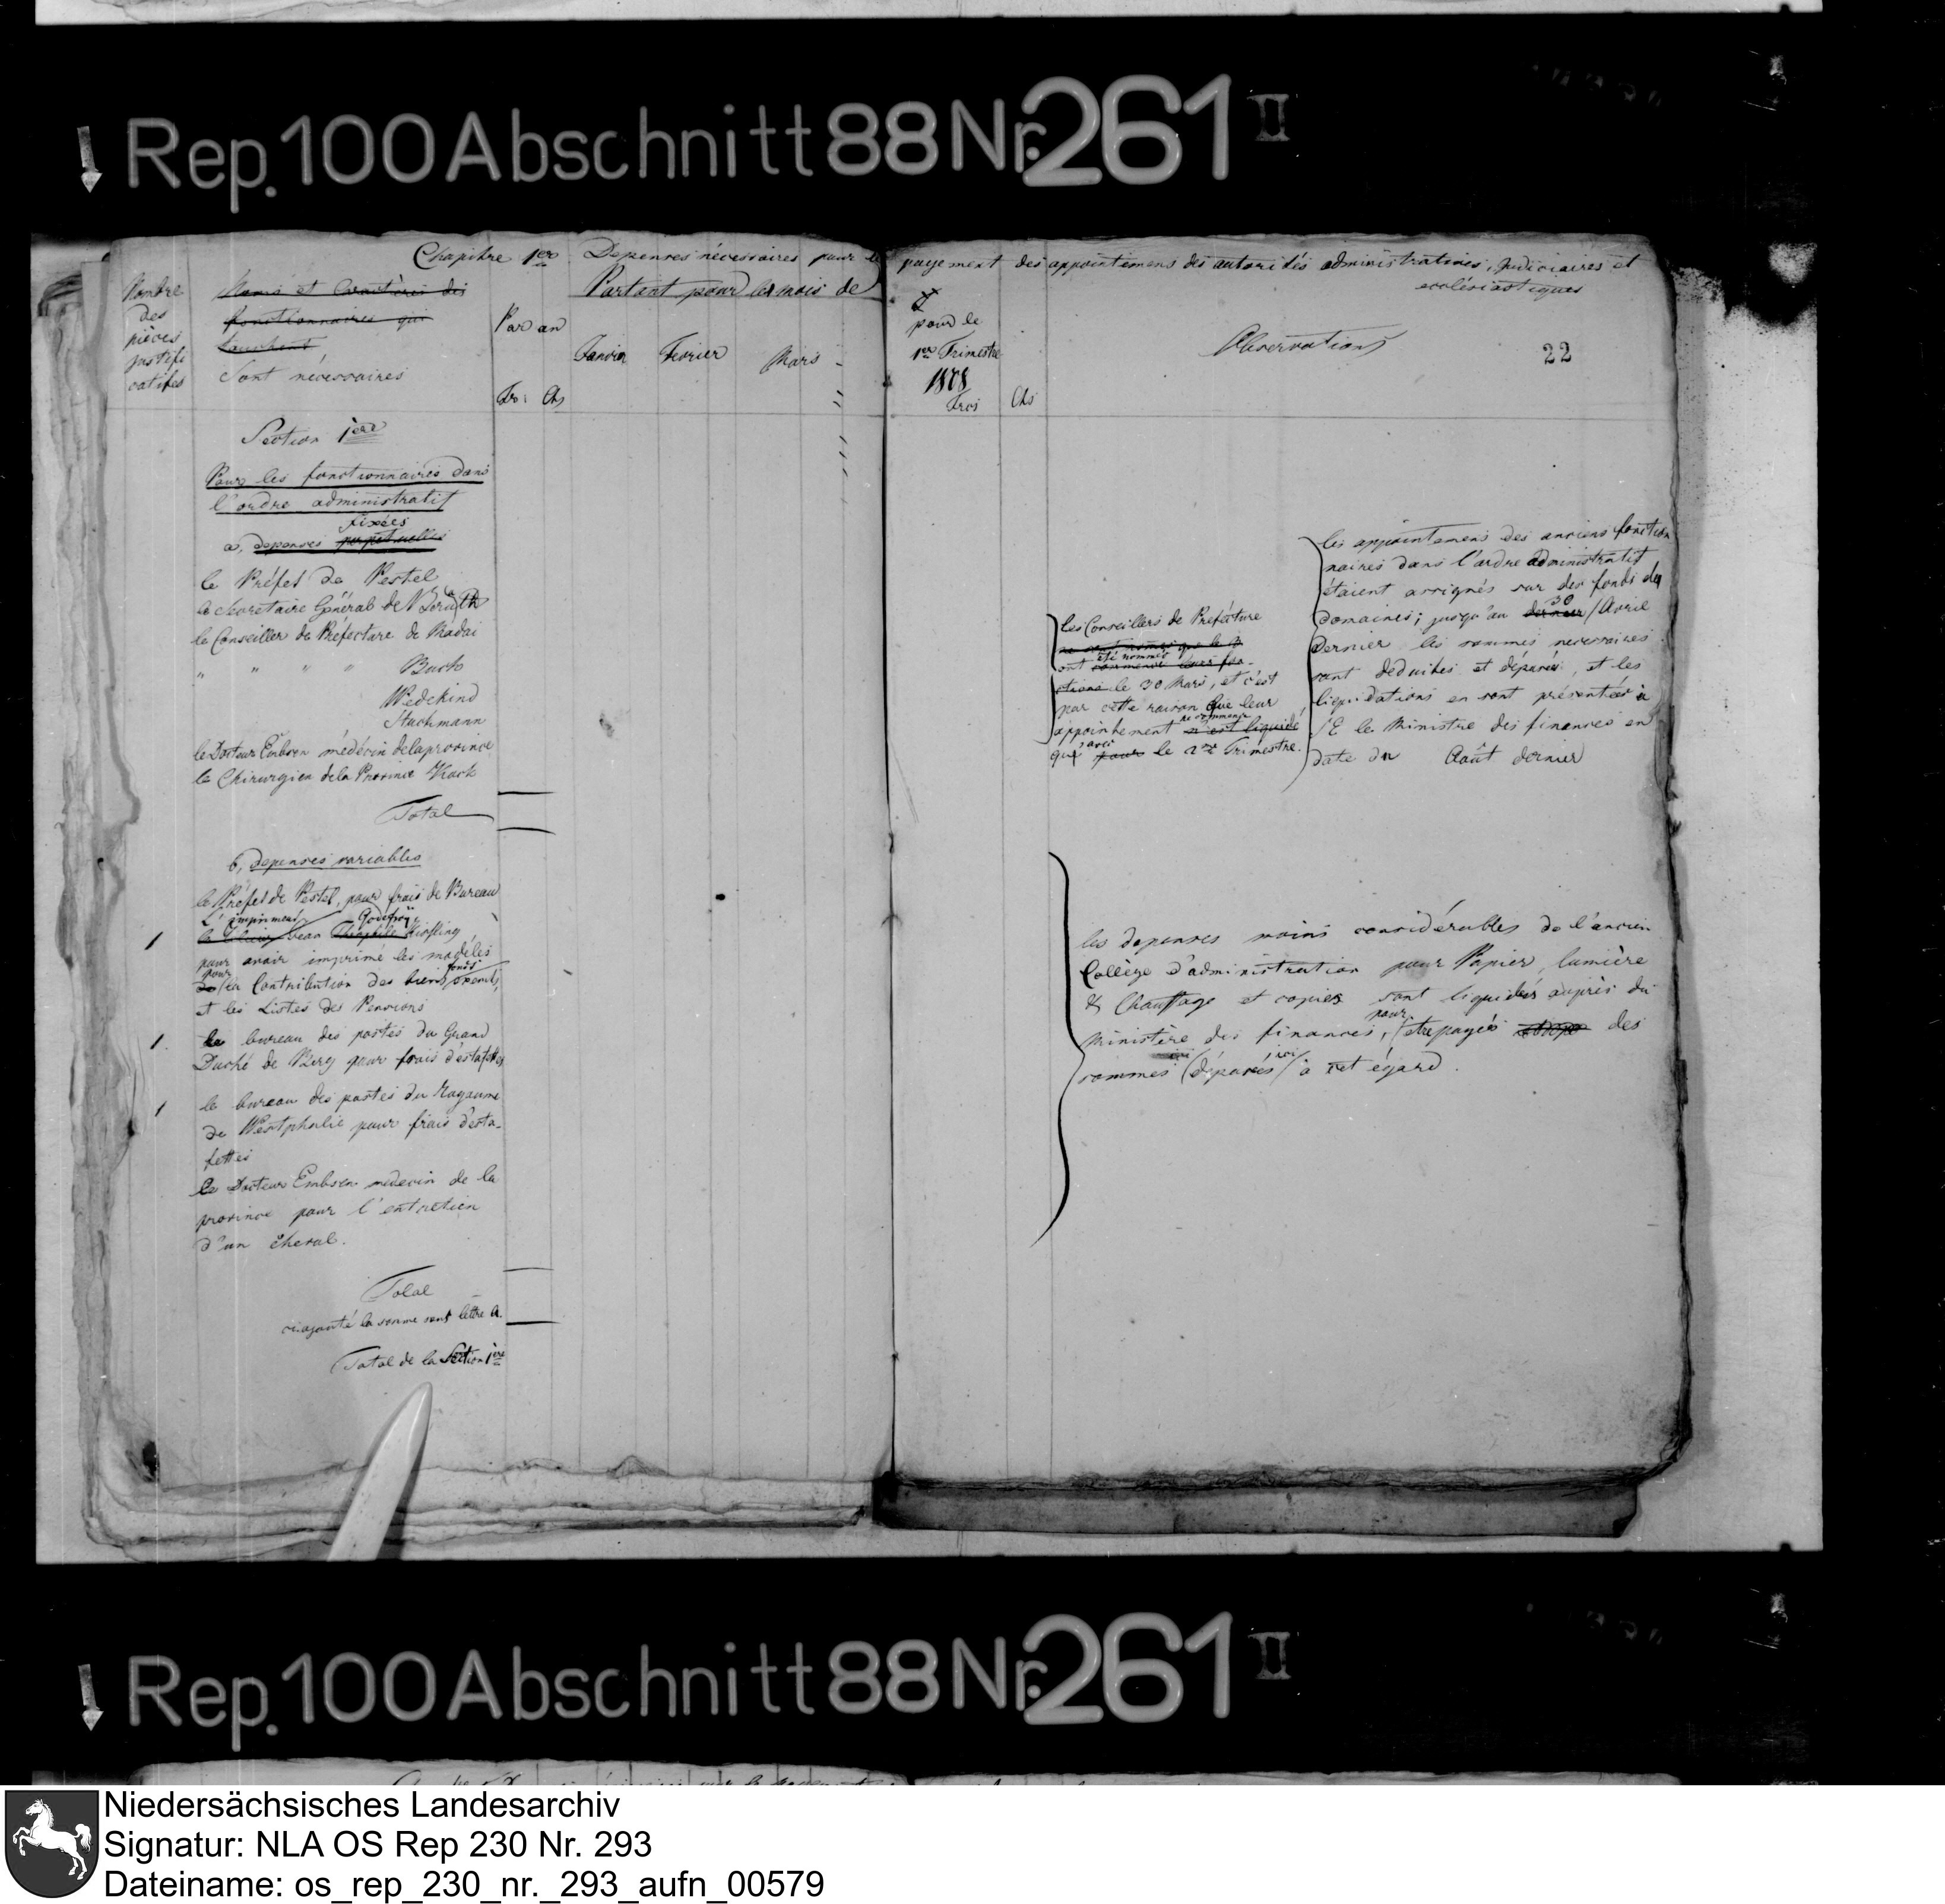 Rep. 100 Abschnitt 88 Nr. 261 II
Chapitre 1ere Depenses nécessaires pour le payement des appointemens des autorités administratives, judiciaires et
ecclésiastiques
Nombre
des
pièces
justifi
catifes
Noms et Caractères des
fonctionnaires qui
touchent,
Sont nécessaires
Par an
Frs: Cts
Partant pour les mois de
Janvier Fevrier Mars
pour le
1er Trimestre
1808
Frcs Cts
Observations
22
Section 1ere
Pour les fonctionnaires dans
l'ordre administratif
fixées
a, depenses perpetuelles
le Préfet de Pestel
le Secretaire Général de
le Conseiller de Préfecture de Madai
" " " " Buch
Wedekind
Stuckmann
le Docteur Embsen médécin de la province
le Chirurgien de la Province
Total
b, depenses variables
le Préfet de Pestel, pour frais de Bureau
L'imprimeur Godefroy
Jean Théophile Kisling
pour avoir imprimé les modèles
pour fonds
de la Contribution des biens exemts,
et les Listes des Pensions
1. le bureau des postes du Grand
Duché de Berg pour frais d'estafettes
1 le bureau des postes du Royaume
de Westphalie pour frais d'esta-
fettes
le Docteur Embsen médecin de la
province pour l'entretien
d'un cheval.
Total
ci ajouté la somme sous lettre a.
Total de la Section 1ere
les Conseillers de Préfecture
été nommés
ont commencé leurs fon-
ctions le 30 Mars, et c'est
par cette raison que leur
ne commence
appointement n'est liquidé
que pour le 2me Trimestre.
les appointemens des anciens fonction
naires dans l'ordre administratif
étaient assignés sur des fonds des
30
domaines; jusqu'au dernier Avril
dernier les sommes necessaires
sont deduites et , et les
liquidations en sont présentées à
S E le Ministre des finances en
date du Août dernier
les depenses moins considérables de l'ancien
Collège d'administration pour Papier, lumière
& Chauffage et copies sont liquidées auprès du
pour
Ministère des finances, etre payés des
sommes à cet égard.
Rep. 100 Abschnitt 88 Nr. 261 II
Niedersächsisches Landesarchiv
Signatur: NLA OS Rep 230 Nr. 293
Dateiname: os_rep_230_nr._293_aufn_00579